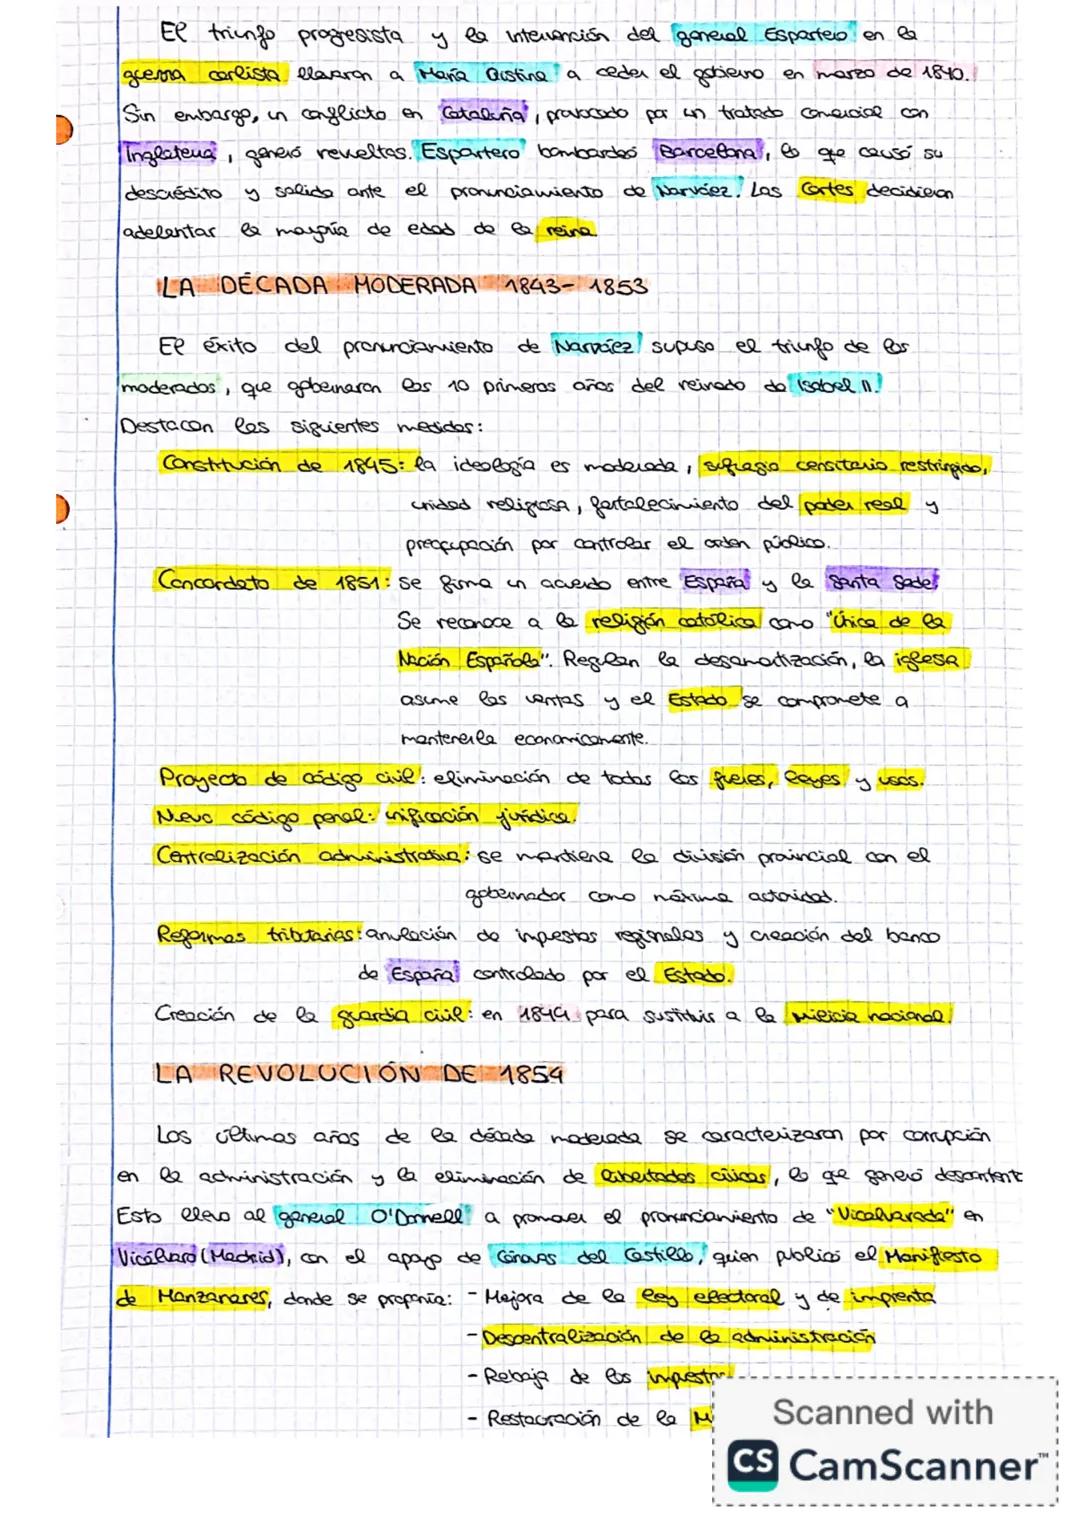 El triunfo progresista y la intervención del general Espartero en la
guerra carlista llevaron a María Cristina a ceder el gobierno en marzo de 1840.
Sin embargo, un conflicto en Cataluña, provocado por un tratado comercial con
Inglaterra, generó revueltas. Espartero bombardeó Barcelona, lo que causó su
descrédito y salida ante el pronunciamiento de Narváez. Las Cortes decidieron
adelantar la mayoría de edad de la reina.
LA DÉCADA MODERADA 1843-1853
El éxito del pronunciamiento de Narváez supuso el triunfo de los
moderados, que gobernaron los 10 primeros años del reinado de Isabel II.
Destacan las siguientes medidas:
Constitución de 1845: la ideología es moderada, sufragio censitario restringido,
unidad religiosa, fortalecimiento del poder real y
preocupación por controlar el orden público.
Concordato de 1851: se firma un acuerdo entre España y la Santa Sede.
Se reconoce a la religión católica como "Única de la
Nación Española". Regulan la desamortización, la iglesia
asume las ventas y el Estado se compromete a
mantenerla económicamente.
Proyecto de código civil: eliminación de todos los fueros, leyes y usos.
Nuevo código penal: unificación jurídica.
Centralización administrativa: se mantiene la división provincial con el
gobernador como máxima autoridad.
Reformas tributarias: anulación de impuestos regionales y creación del banco
de España controlado por el Estado.
Creación de la guardia civil: en 1844 para sustituir a la milicia nacional.
LA REVOLUCIÓN DE 1854
Los últimos años de la década moderada se caracterizaron por corrupción
en la administración y la eliminación de libertades cívicas, lo que generó descontent
Esto llevó al general O'Donnell a promover el pronunciamiento de "Vicalvarada" en
Vicálvaro (Madrid), con el apoyo de Cánovas del Castillo, quien publicó el Manifiesto
de Manzanares, donde se proponía: - Mejora de la ley electoral y de imprenta
- Descentralización de la administración
- Rebaja de los impuestos
- Restauración de la M
Scanned with
CS CamScanner™